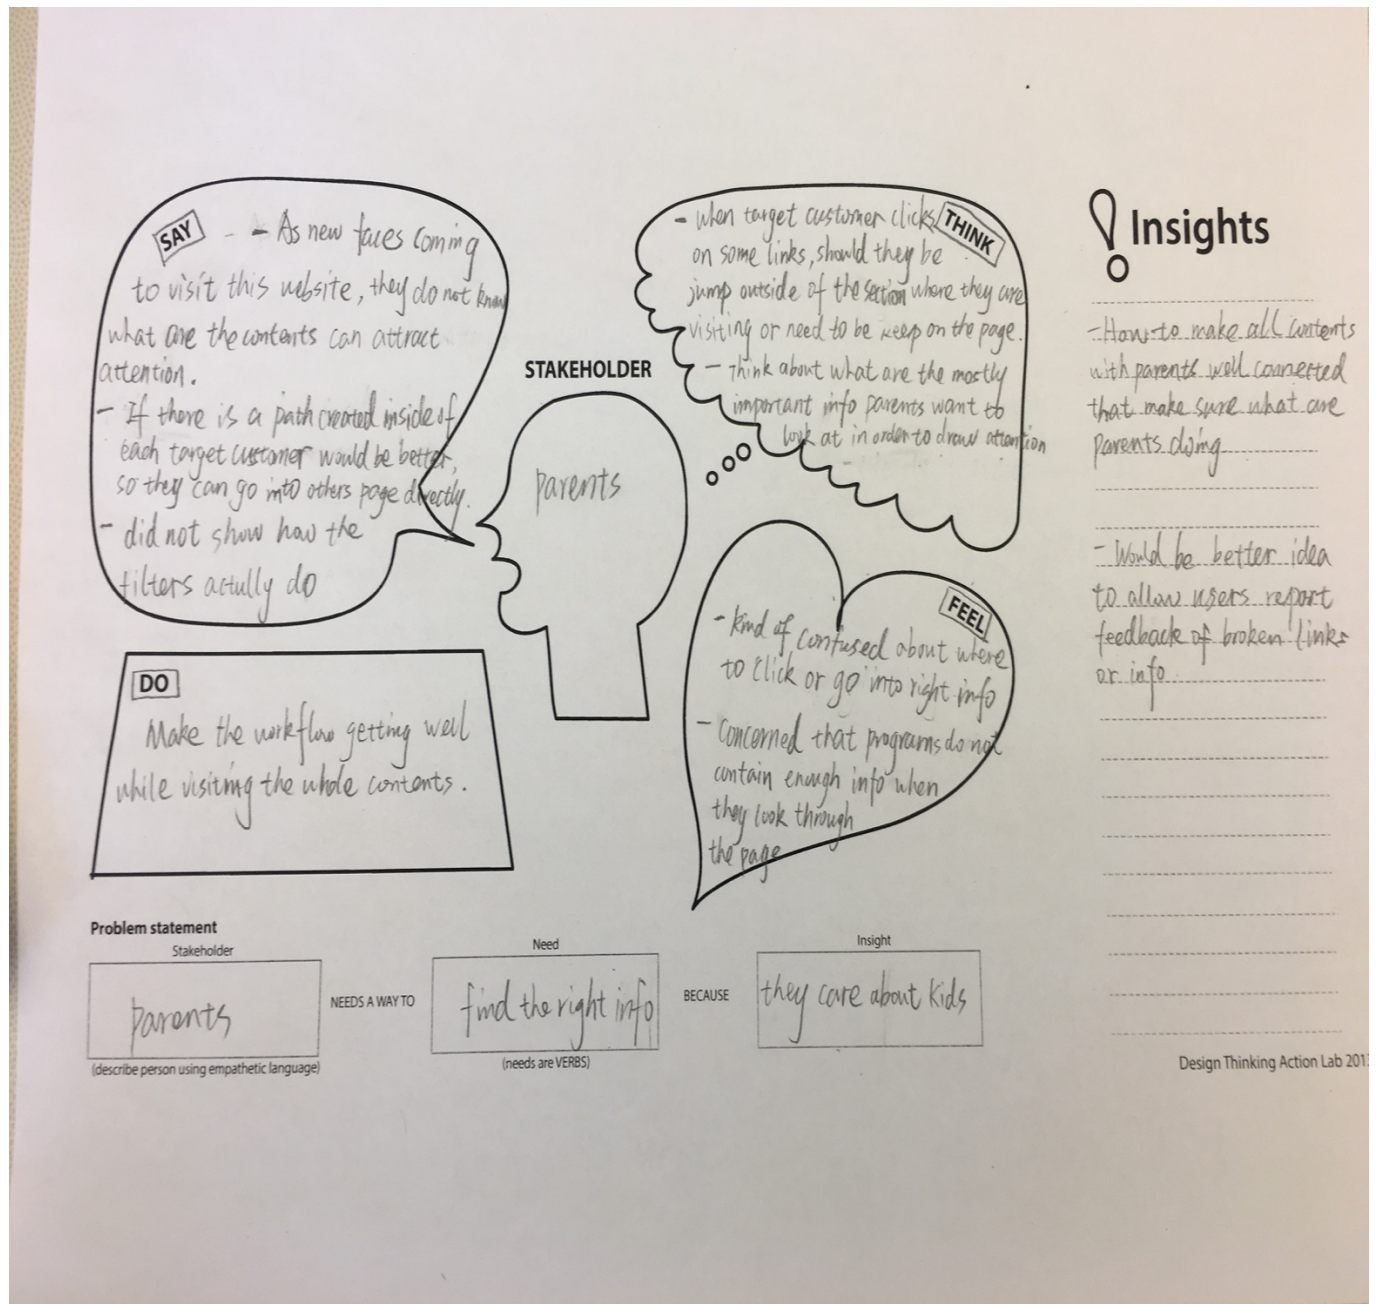 SAY
- - As new faces coming
to visit this website, they do not know
what are the contents can attract
attention.
- If there is a path created inside of
each target customer would be better,
so they can go into others page directly.
- did not show how the
filters actully do
STAKEHOLDER
parents
THINK
- when target customer clicks
on some links, should they be
jump outside of the section where they are
visiting or need to be keep on the page.
- Think about what are the mostly
important info parents want to
look at in order to draw attention
DO
Make the workflow getting well
while visiting the whole contents.
FEEL
- kind of confused about where
to click or go into right info
- Concerned that programs do not
contain enough info when
they look through
the page
Insights
- How to make all contents
with parents well connected
that make sure what are
parents doing
- Would be better idea
to allow users report
feedback of broken links
or info
Problem statement
Stakeholder
parents
(describe person using empathetic language)
NEEDS A WAY TO
Need
find the right info
(needs are VERBS)
BECAUSE
Insight
they care about kids
Design Thinking Action Lab 201